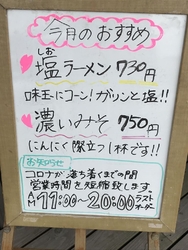 今月のおすすめ
しお
塩ラーメン 730円
味玉にコーン!ガツンと塩!!
濃いみそ 750円
にんにく際立つ1杯です!!
お知らせ
コロナが落ち着くまでの間
営業時間を短縮致します。
11:00~20:00 ラスト
オーダー